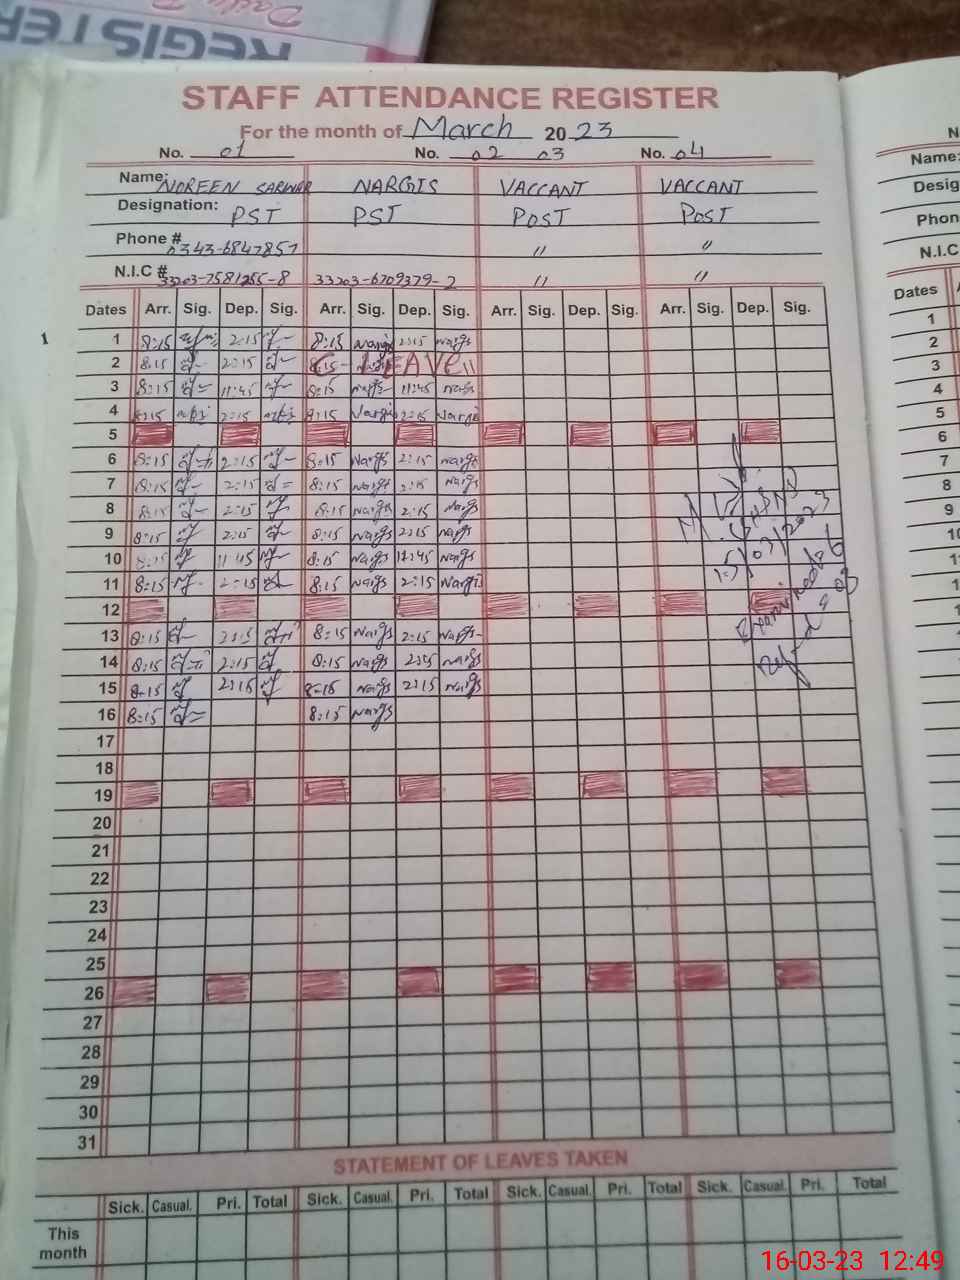 REGISTER
Daily
STAFF ATTENDANCE REGISTER
For the month of March 2023
No. 01 No. 02 03 No. 04
Name: NOREEN SARWAR NARGIS VACCANT VACCANT
Designation: PST PST POST POST
Phone # 0343-6847857 " "
N.I.C # 33203-7581255-8 33203-6709379-2 " "
Dates Arr. Sig. Dep. Sig. Arr. Sig. Dep. Sig. Arr. Sig. Dep. Sig. Arr. Sig. Dep. Sig.
1 8:15 2:15 8:15 Nargis 2:15 Nargs
2 8:15 2:15 8:15 C- LEAVE
3 8:15 11:45 8:15 Nargs 11:45 Nargs
4 8:15 2:15 8:15 Nargis 2:15 Nargis
5
6 8:15 2:15 8:15 Nargs 2:15 Nargs
7 8:15 2:15 8:15 Nargs 2:15 Nargs
8 8:15 2:15 8:15 Nargs 2:15 Nargs
9 8:15 2:15 8:15 Nargs 2:15 Nargs
10 8:15 11:45 8:15 Nargs 11:45 Nargs
11 8:15 2:15 8:15 Nargs 2:15 Nargis
12
13 8:15 2:15 8:15 Nargs 2:15 Nargs
14 8:15 2:15 8:15 Nargs 2:15 Nargs
15 8:15 2:15 8:15 Nargs 2:15 Nargs
16 8:15 8:15 Nargs
17
18
19
20
21
22
23
24
25
26
27
28
29
30
31
15/03/2023
STATEMENT OF LEAVES TAKEN
Sick. Casual. Pri. Total Sick. Casual. Pri. Total Sick. Casual. Pri. Total Sick. Casual. Pri. Total
This
month
Name:
Desig
Phon
N.I.C
Dates
1
2
3
4
5
6
7
8
9
10
16-03-23 12:49